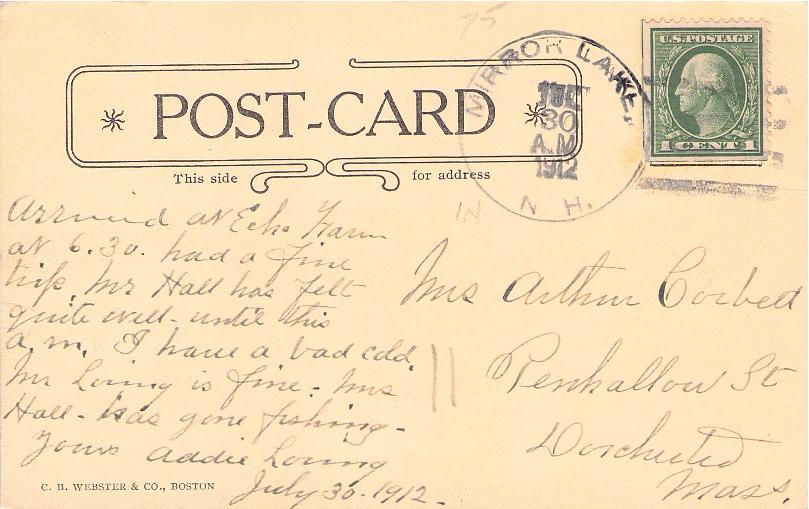 75
MIRROR LAKE,
JUL
30
A.M
1912
N. H.
U.S. POSTAGE
1 CENT 1
POST-CARD
This side for address
IN
Arrived at Echo Farm
at 6.30. had a fine
trip. Mr Hall has felt
quite well - until this
a.m. I have a bad cold.
Mr Loring is fine - Mrs
Hall - has gone fishing -
Yours Addie Loring
July 30 - 1912 -
Mrs Arthur Corbett
11
Penhallow St
Dorchester
Mass.
C. B. WEBSTER & CO., BOSTON